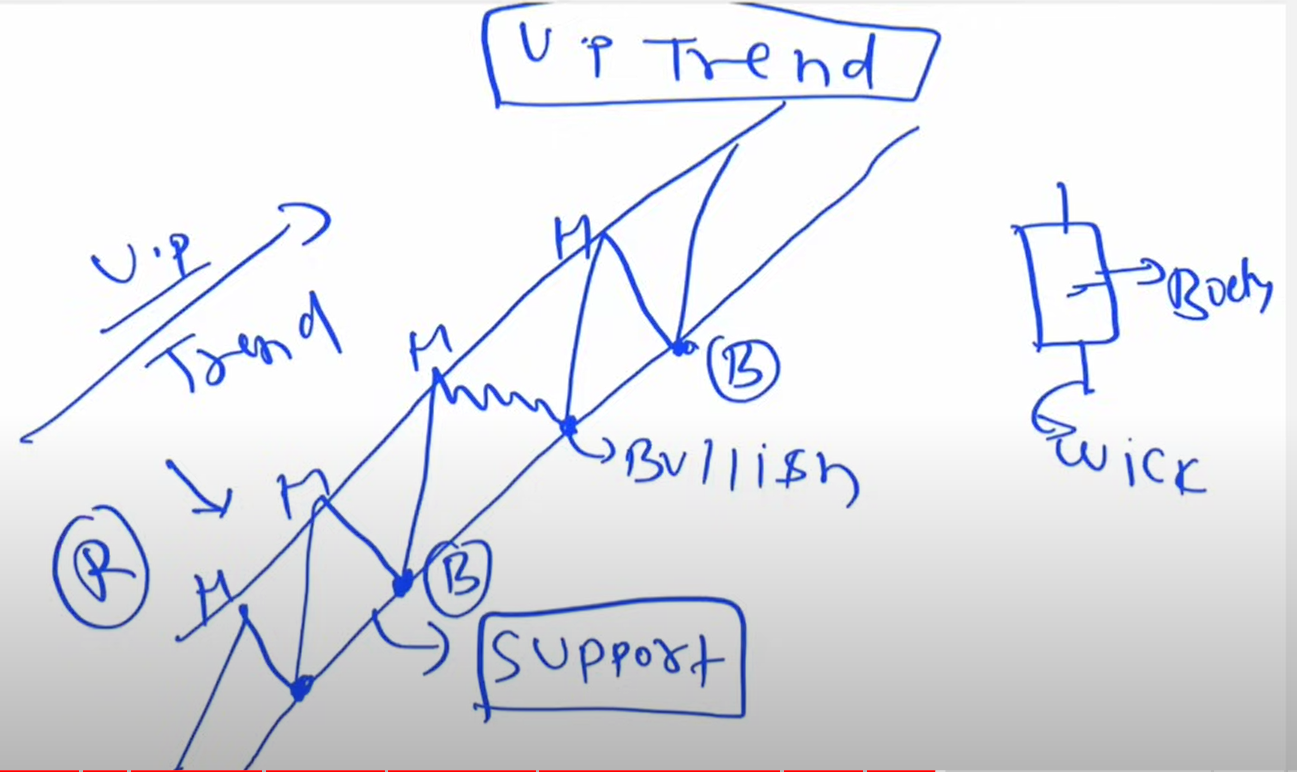 Up Trend
U.p
Trend
H
H
H
H
B
B
Bullish
R
Support
Body
Wick